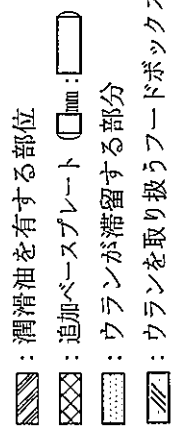 ：潤滑油を有する部位
：追加ベースプレート mm：
：ウランが滞留する部分
：ウランを取り扱うフードボックス